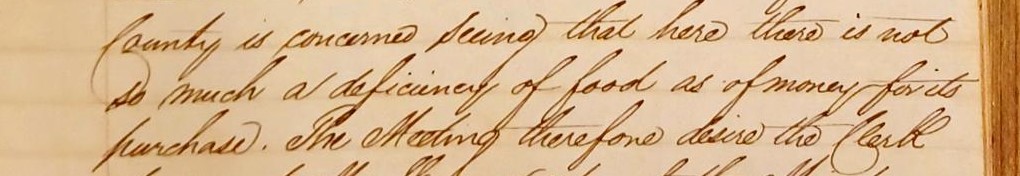 County is concerned seeing that here there is not
so much a deficiency of food as of money for its
purchase. The Meeting therefore desire the Clerk